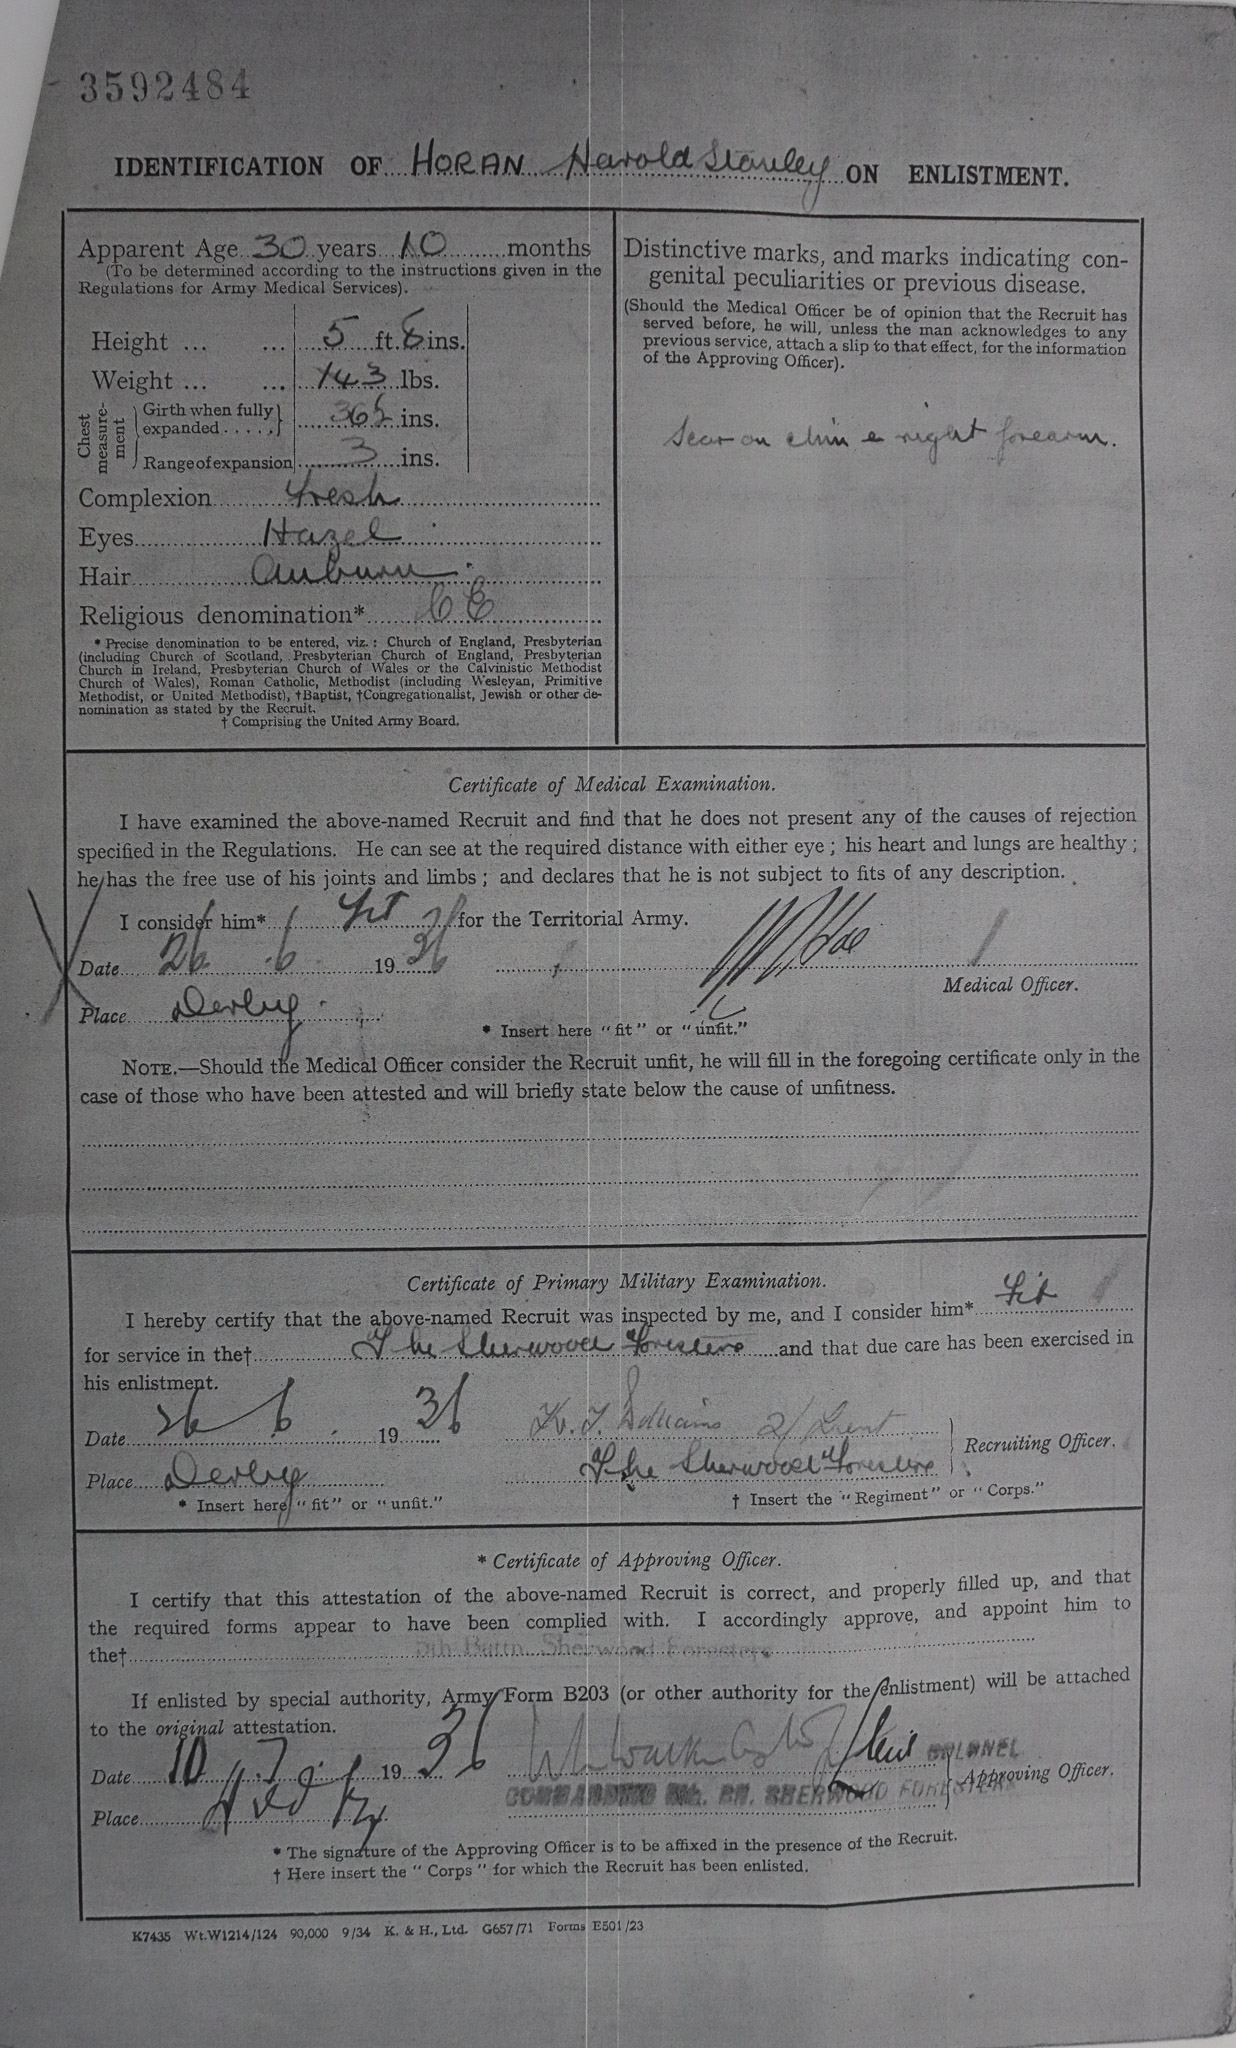 3592484
IDENTIFICATION OF HORAN Harold Stanley ON ENLISTMENT.
Apparent Age 30 years 10 months
(To be determined according to the instructions given in the
Regulations for Army Medical Services).
Height ... ... 5 ft. 8 ins.
Weight ... ... 143 lbs.
Chest measure-ment
Girth when fully
expanded . . . . . 36½ ins.
Range of expansion 3 ins.
Complexion Fresh
Eyes Hazel
Hair Auburn
Religious denomination* C E
* Precise denomination to be entered, viz. : Church of England, Presbyterian
(including Church of Scotland, Presbyterian Church of England, Presbyterian
Church in Ireland, Presbyterian Church of Wales or the Calvinistic Methodist
Church of Wales), Roman Catholic, Methodist (including Wesleyan, Primitive
Methodist, or United Methodist), †Baptist, †Congregationalist, Jewish or other de-
nomination as stated by the Recruit.
† Comprising the United Army Board.
Distinctive marks, and marks indicating con-
genital peculiarities or previous disease.
(Should the Medical Officer be of opinion that the Recruit has
served before, he will, unless the man acknowledges to any
previous service, attach a slip to that effect, for the information
of the Approving Officer).
Scar on chin & right forearm.
Certificate of Medical Examination.
I have examined the above-named Recruit and find that he does not present any of the causes of rejection
specified in the Regulations. He can see at the required distance with either eye ; his heart and lungs are healthy ;
he has the free use of his joints and limbs ; and declares that he is not subject to fits of any description.
I consider him* fit for the Territorial Army.
Date 26 . 6 . 19 36
Medical Officer.
Place Derby .
* Insert here "fit" or "unfit."
NOTE.—Should the Medical Officer consider the Recruit unfit, he will fill in the foregoing certificate only in the
case of those who have been attested and will briefly state below the cause of unfitness.
Certificate of Primary Military Examination.
I hereby certify that the above-named Recruit was inspected by me, and I consider him* Fit
for service in the† The Sherwood Foresters and that due care has been exercised in
his enlistment.
Date 26 6 . 19 36 K. J. Williams 2/Lieut
Recruiting Officer.
Place Derby The Sherwood Foresters
* Insert here "fit" or "unfit." † Insert the "Regiment" or "Corps."
* Certificate of Approving Officer.
I certify that this attestation of the above-named Recruit is correct, and properly filled up, and that
the required forms appear to have been complied with. I accordingly approve, and appoint him to
the† 5th Battn. Sherwood Foresters
If enlisted by special authority, Army Form B203 (or other authority for the enlistment) will be attached
to the original attestation.
Date 10 . 7 . 19 36 COLONEL
Approving Officer.
Place COMMANDING BN. SHERWOOD FORESTERS
* The signature of the Approving Officer is to be affixed in the presence of the Recruit.
† Here insert the "Corps" for which the Recruit has been enlisted.
K7435 Wt.W1214/124 90,000 9/34 K. & H., Ltd. G657/71 Forms E501/23